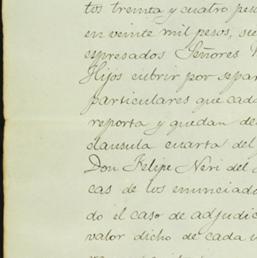 tos treinta y cuatro pes
en veinte mil pesos, su
espresados Señores
Hijos cubrir por sepa
particulares que cad
reporta y quedan de
clausula cuarta del
Don Felipe Neri del
cas de los enunciado
do el caso de adjudic
valor dicho de cada